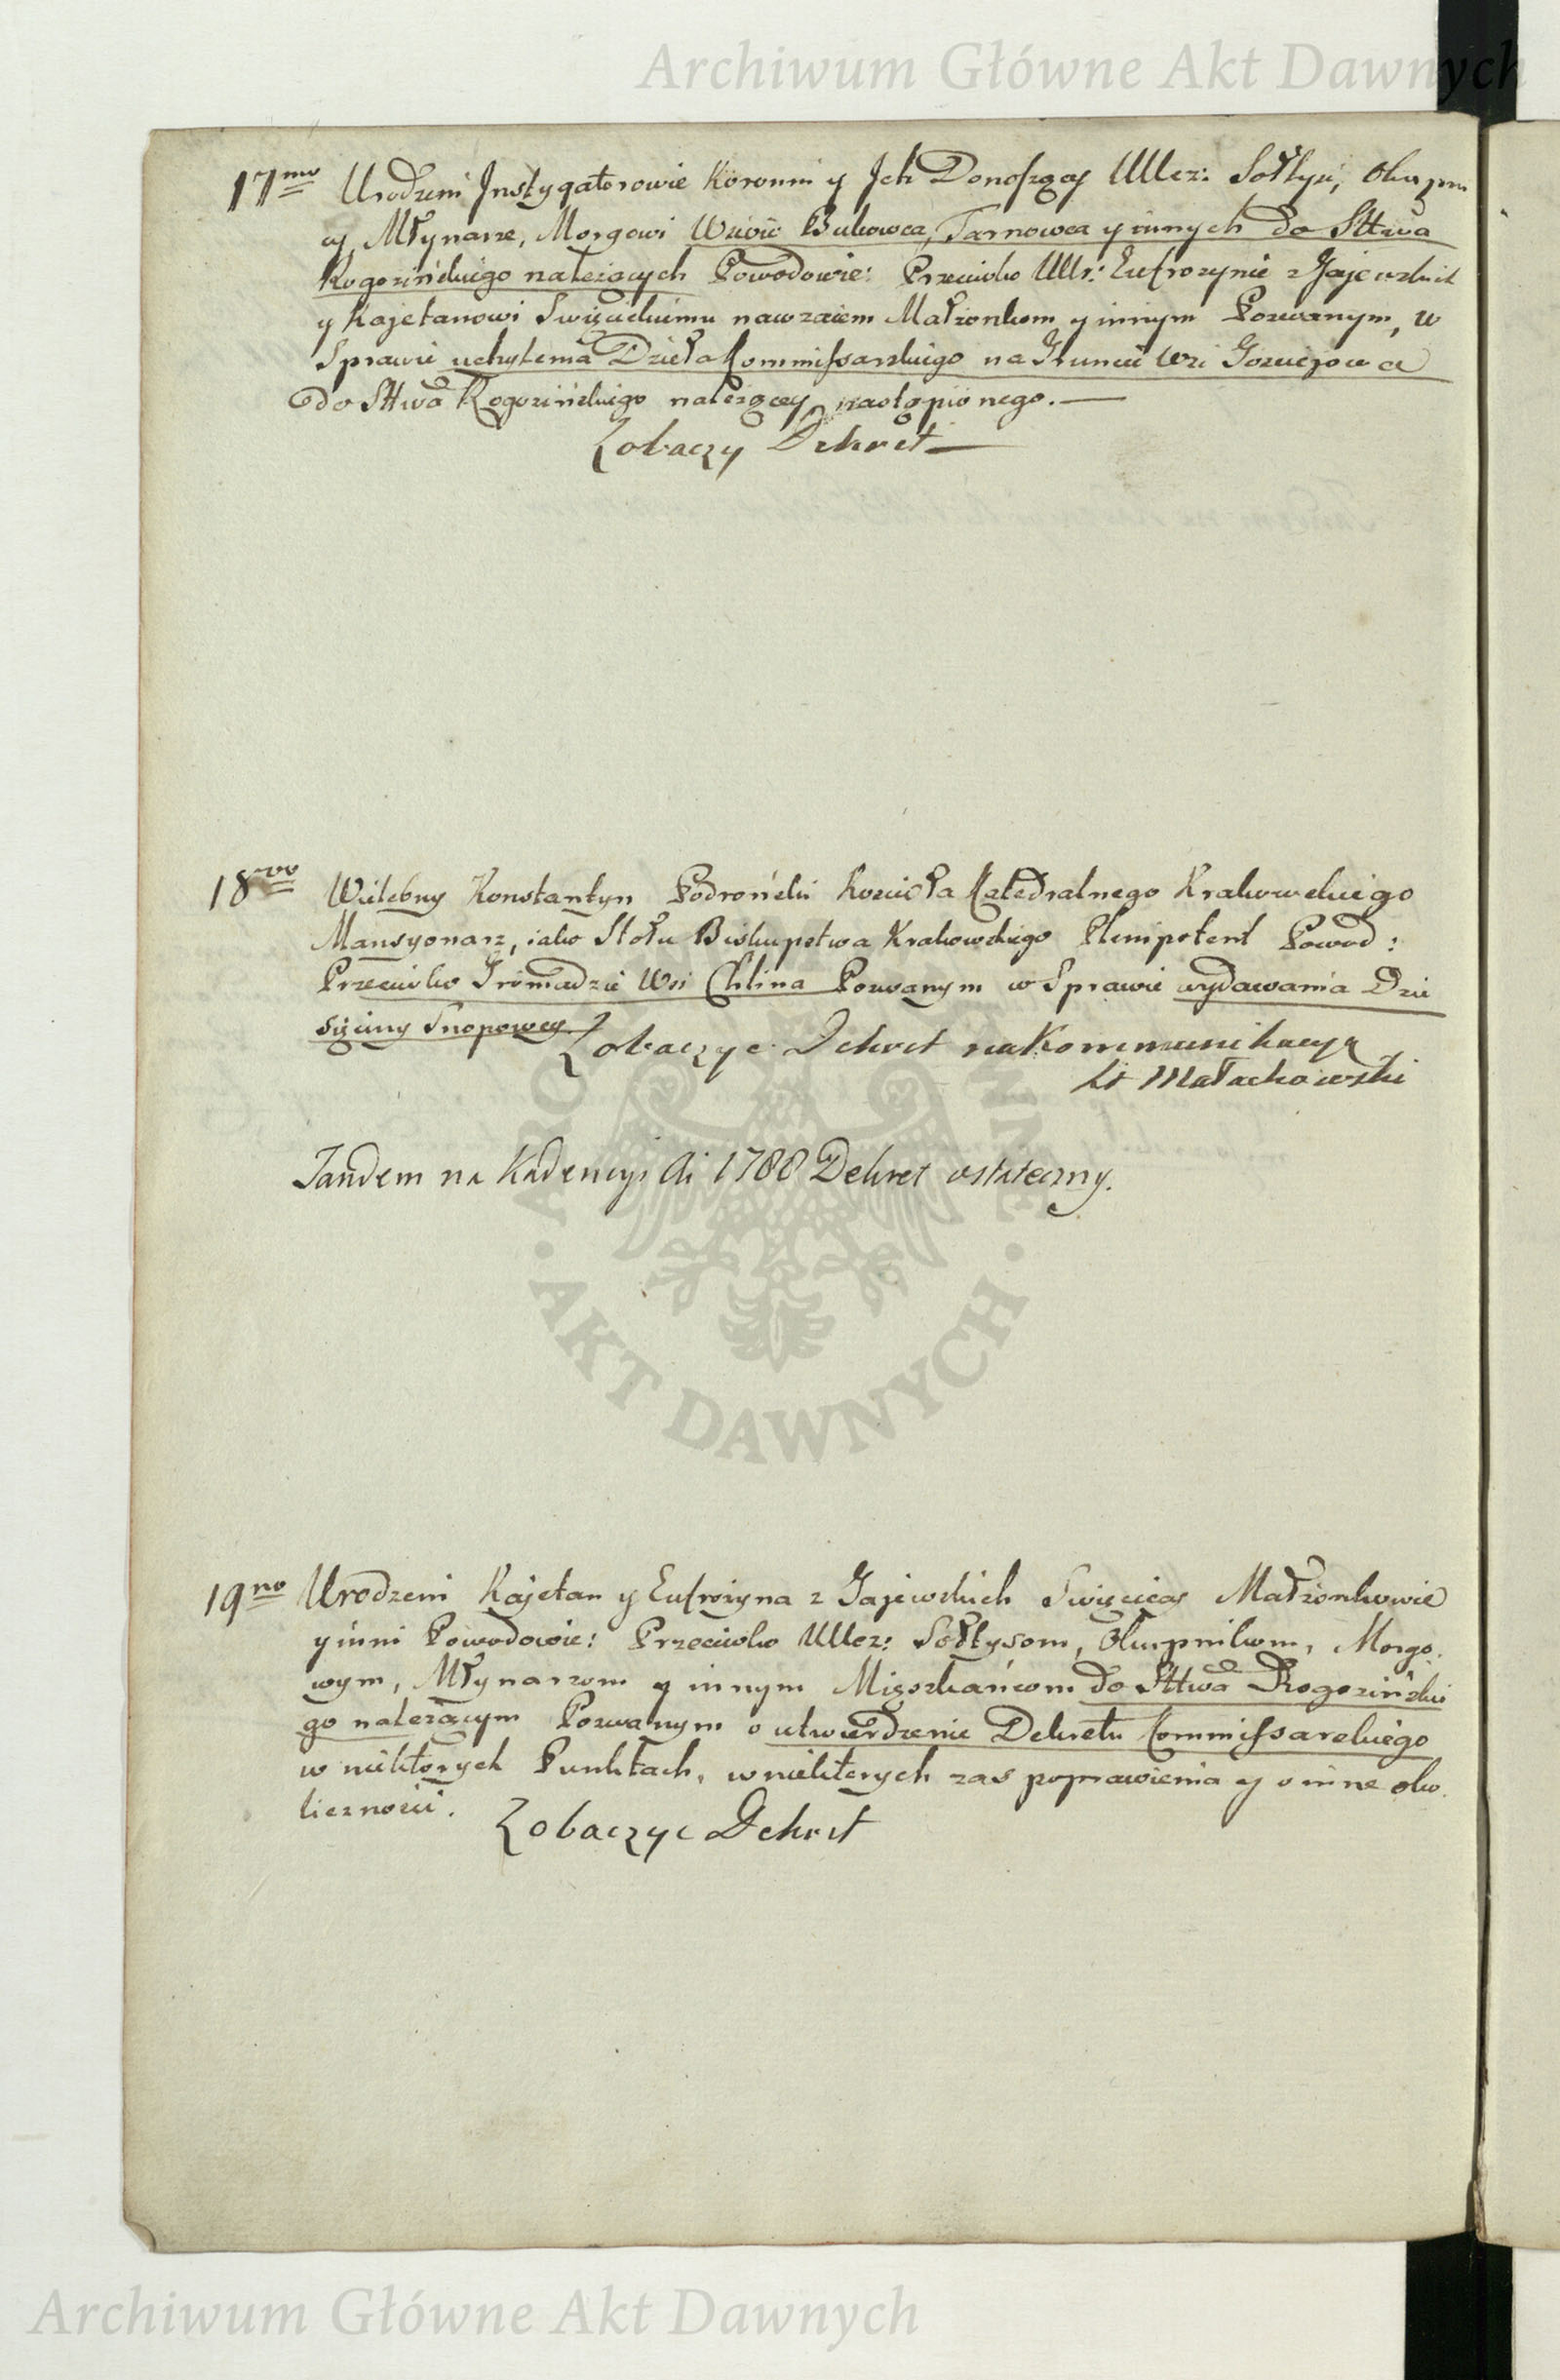 Archiwum Główne Akt Dawnych
17mo Urodzeni Instygatorowie Koronni y Jch Donoszący Ulicz: Sołtysi, Okupni
cy, Młynarze, Morgowi Wsiów Bukowca, Tarnowca y innych do Sttwa
Rogozińskiego należących Powodowie: Przeciwko Ullr: Eufrozynie z Gajewskich
y Kajetanowi Swięcickiemu nawzaiem Małżonkom y innym Pozwanym, w
Sprawie uchylenia Dzieła Kommissarskiego na Gruncie Wsi
do Sttwa Rogozińskiego należącey nastąpionego.
Zobaczy Dekret
18vo Wielebny Konstantyn Podroński Koscioła Katedralnego Krakowskiego
Mansyonarz, iako Stołu Biskupstwa Krakowskiego Plenipotent Powod:
Przeciwko Gromadzie Wsi Chlina Pozwanym w Sprawie wydawania Dzie
sięciny Snopowey
Zobaczyc Dekret na Kommunikacyą
Małachowski
Tandem na Kadencyi Ai 1788 Dekret ostateczny.
19no Urodzeni Kajetan y Eufrozyna z Gajewskich Swięciccy Małżonkowie
y inni Powodowie: Przeciwko Ullcz: Sołtysom, Okupnikom, Morgo
wym, Młynarzom y innym Mięszkańcom do Sttwa Rogozińskie
go należącym Pozwanym o utwierdzenie Dekretu Kommissarskiego
w niektorych Punktach, w niektorych zas poprawienia y o inne oko
licznosci.
Zobaczyc Dekret
ARCHIWUM GŁÓWNE
· AKT DAWNYCH ·
Archiwum Główne Akt Dawnych